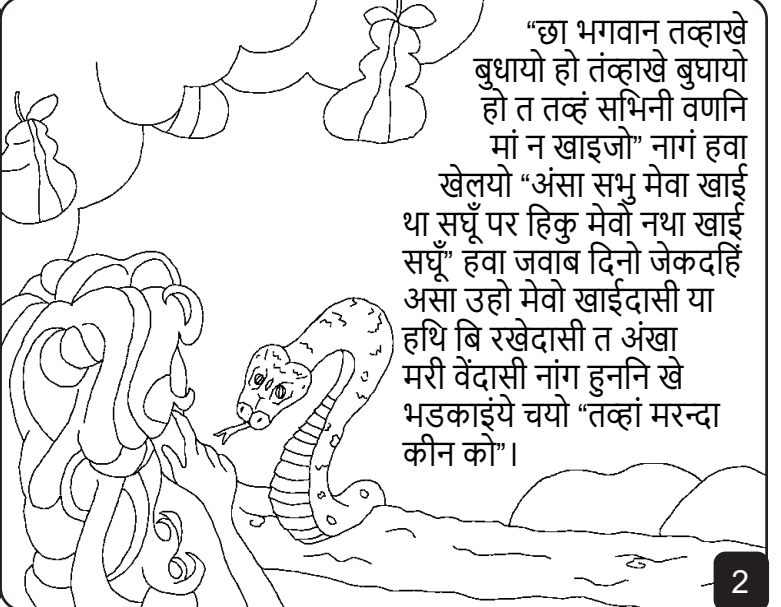 “छा भगवान तव्हाखे
बुधायो हो तंव्हाखे बुघायो
हो त तव्हं सभिनी वणनि
मां न खाइजो” नागं हवा
खेलयो “अंसा सभु मेवा खाई
था सघूँ पर हिकु मेवो नथा खाई
सघूँ” हवा जवाब दिनो जेकदहिं
असा उहो मेवो खाईदासी या
हथि बि रखेदासी त अंखा
मरी वेंदासी नांग हुननि खे
भडकाइंये चयो “तव्हां मरन्दा
कीन को”।
2